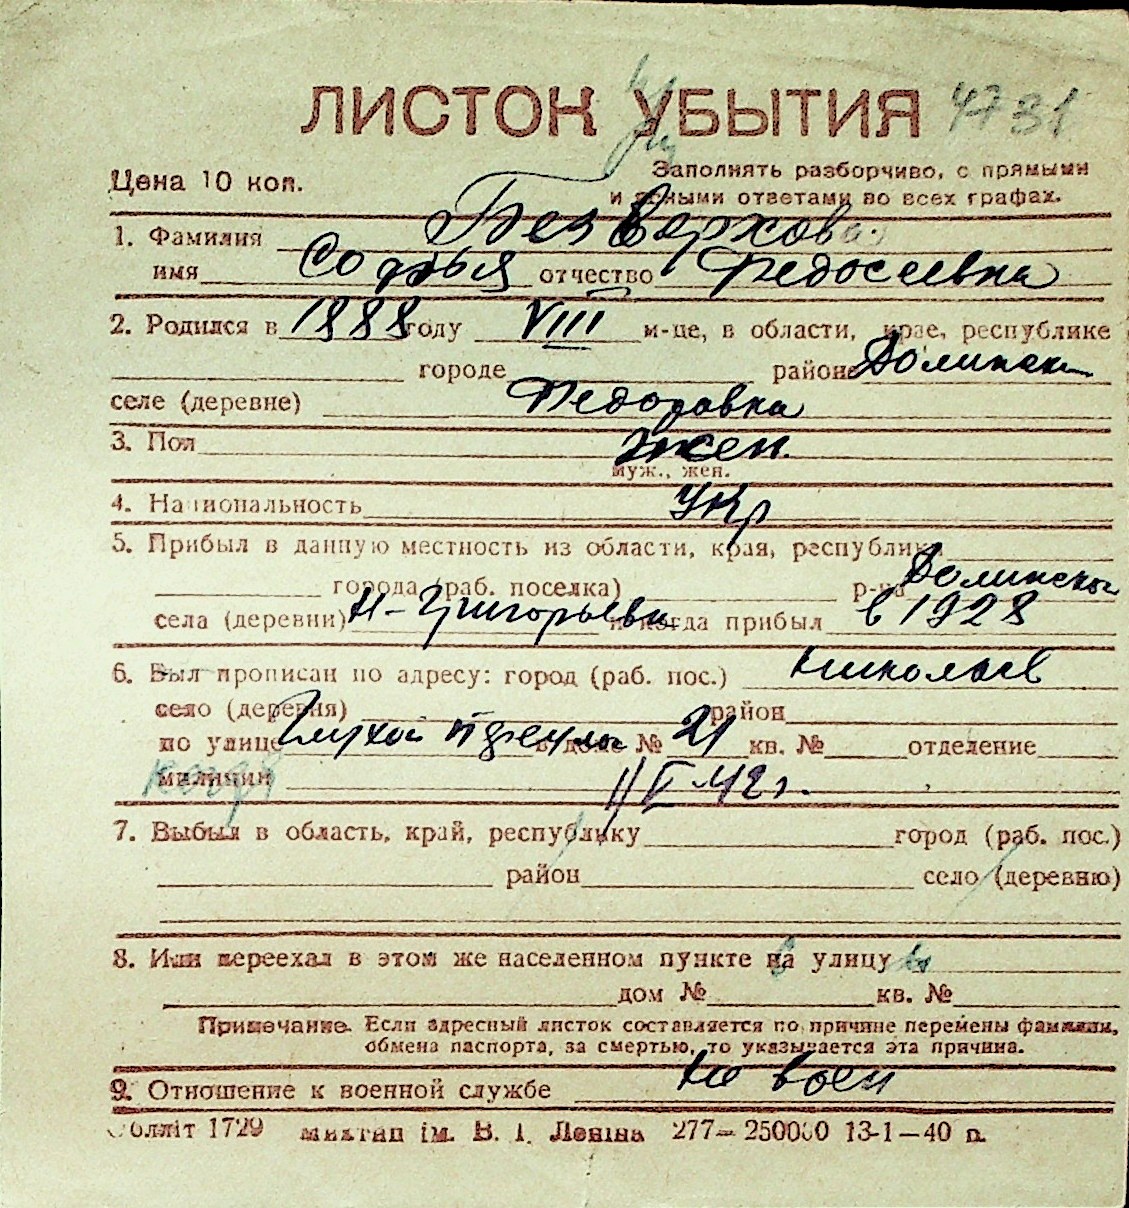 ЛИСТОК УБЫТИЯ 4731
Цена 10 коп.
Заполнять разборчиво, с прямыми
и ясными ответами во всех графах.
1. Фамилия Безверхова
имя Софья отчество Федосеевна
2. Родился в 1888 году VIII м-це, в области, крае, республике
городе районе Долинск
селе (деревне) Федоровка
3. Пол жен.
муж., жен.
4. Национальность Укр
5. Прибыл в данную местность из области, края, республики
города (раб. поселка) р-на Долински
села (деревни) Н-Григорьевка и когда прибыл в 1928
6. Был прописан по адресу: город (раб. пос.) Николаев
село (деревня) район
по улице в доме № 21 кв. № отделение
милиции когда 11 V 42 г.
7. Выбыл в область, край, республику город (раб. пос.)
район село (деревню)
8. Или переехал в этом же населенном пункте на улицу
дом № кв. №
Примечание. Если адресный листок составляется по причине перемены фамилии,
обмена паспорта, за смертью, то указывается эта причина.
9. Отношение к военной службе не воен
Обллiт 1729 iм. В. I. Ленiна 277— 250000 13-1—40 р.